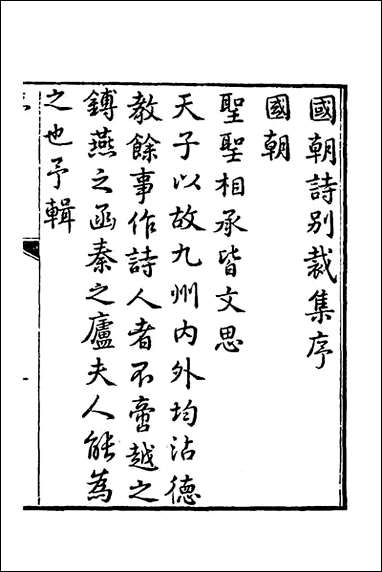 國朝詩別裁集序
國朝
聖聖相承皆文思
天子以故九州內外均沾德
教餘事作詩人者不啻越之
鎛燕之函秦之廬夫人能為
之也予輯